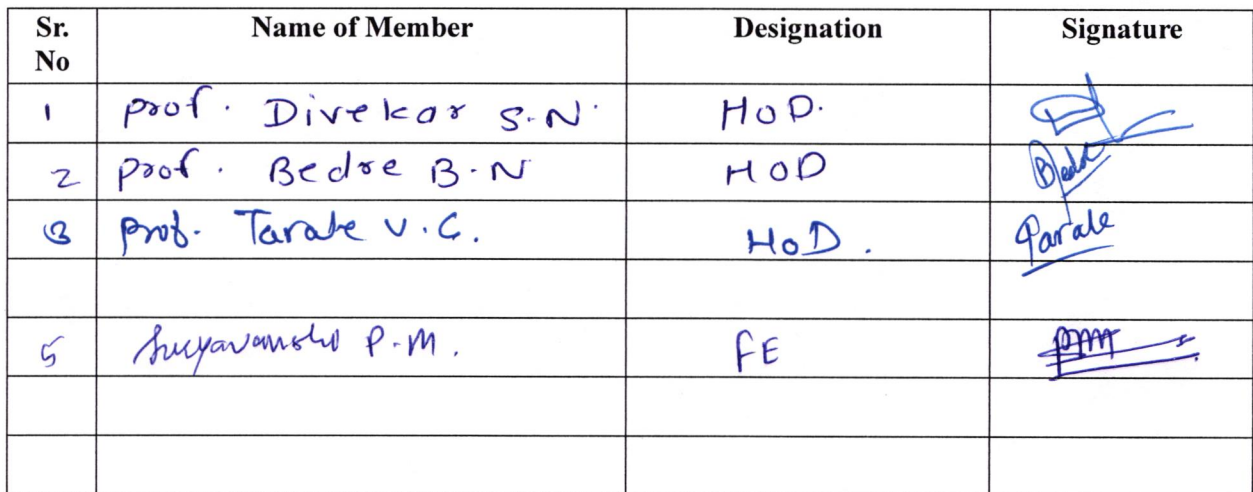 Sr. No Name of Member Designation Signature
1 Prof. Divekar S.N. HoD.
2 Prof. Bedre B.N HOD Bedre
3 Prof. Tarate V.C. HoD. Tarate
5 Suryavanshi P.M. FE PM